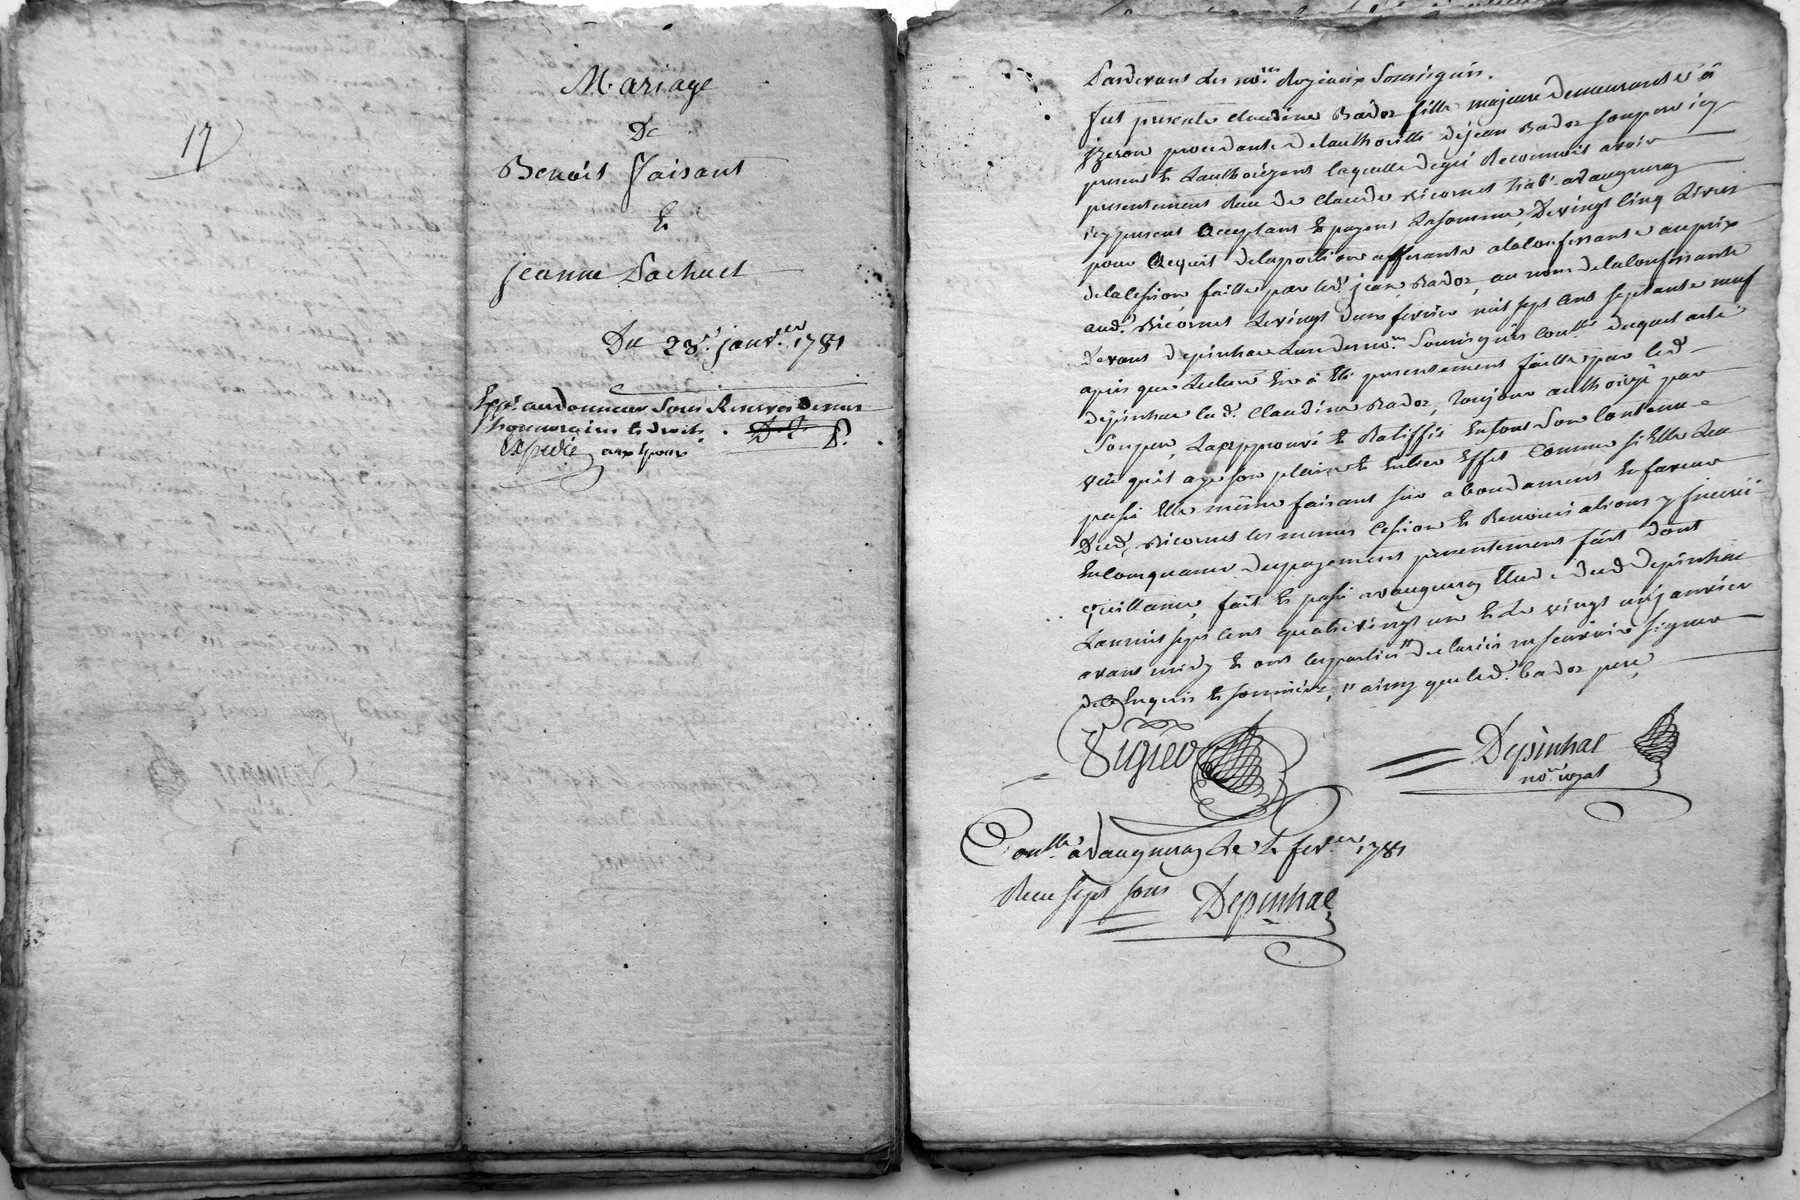 17
Mariage
De
Benoit faisant
Et
jeanne Pachuct
Du 23e. janv.er 1781
Expé. au donneur sous Reserves de mes
honnoraires et droits.
Expedié aux epoux
Pardevant Les no.res Royeaux Soussignés.
fut presente claudine Bador fille majeure demeurante à
jzeron procedante de lauthorité de jean Bador son pere icy
present et Lauthorizant laquelle degré Reconnoit avoir
presentement Receu de claude Bicornet hab.t a vaugneray
icy present acceptant et payant La somme De vingt cinq Livres
pour acquit de la portion afferante a la confessante au prix
de la cession faitte par led. jean Bador, au nom de la confessante
aud. Bicornet Le vingt deux fevrier mil sept cent septante neuf
devant depinhac L'un des no.res Soussignés Con.llé duquel acte
après que Lecture En a Eté presentement faitte par led.
depinhac lad. claudine Bador, toujour authorizé par
Son pere, La approuvé et Ratiffié En tout Son contenu
veu quil aye son plein et Entier Effet comme si Elle Leu
passé Elle même faisant sur abondament En faveur
Dud. Bicornet les memes Cession et Renonciations y inserées
En consequance du payement presentement fait dont
quittance, fait et passé a vaugneray Etude dud. depinhac
Lan mil sept cent quatrevingt un et Le vingt neuf janvier
avant midy et ont les parties declarées ne scavoir signer
de ce Enquis et sommées, ainsy que led. bador pere
Depinhac
no.re royal
Con.llé à Vaugneray Le fev.er 1781
Receu sept sous Depinhac